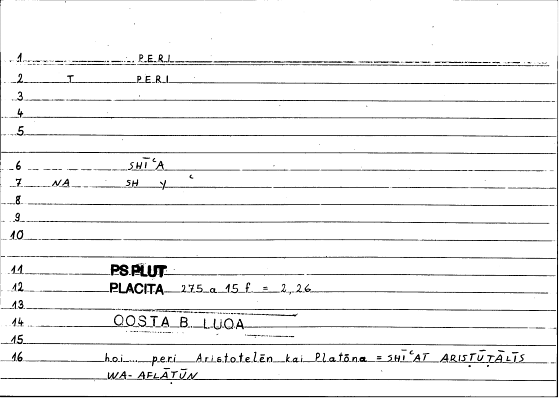 1 PERI
2 T PERI
3
4
5
6 SHĪʿA
7 NA SH Y ʿ
8
9
10
11 PS.PLUT
12 PLACITA 275 a 15 f = 2,26
13
14 QOSTA B. LUQA
15
16 hoi peri Aristotelēn kai Platōna = SHĪʿAT ARISṬŪṬĀLĪS
WA-AFLĀṬŪN